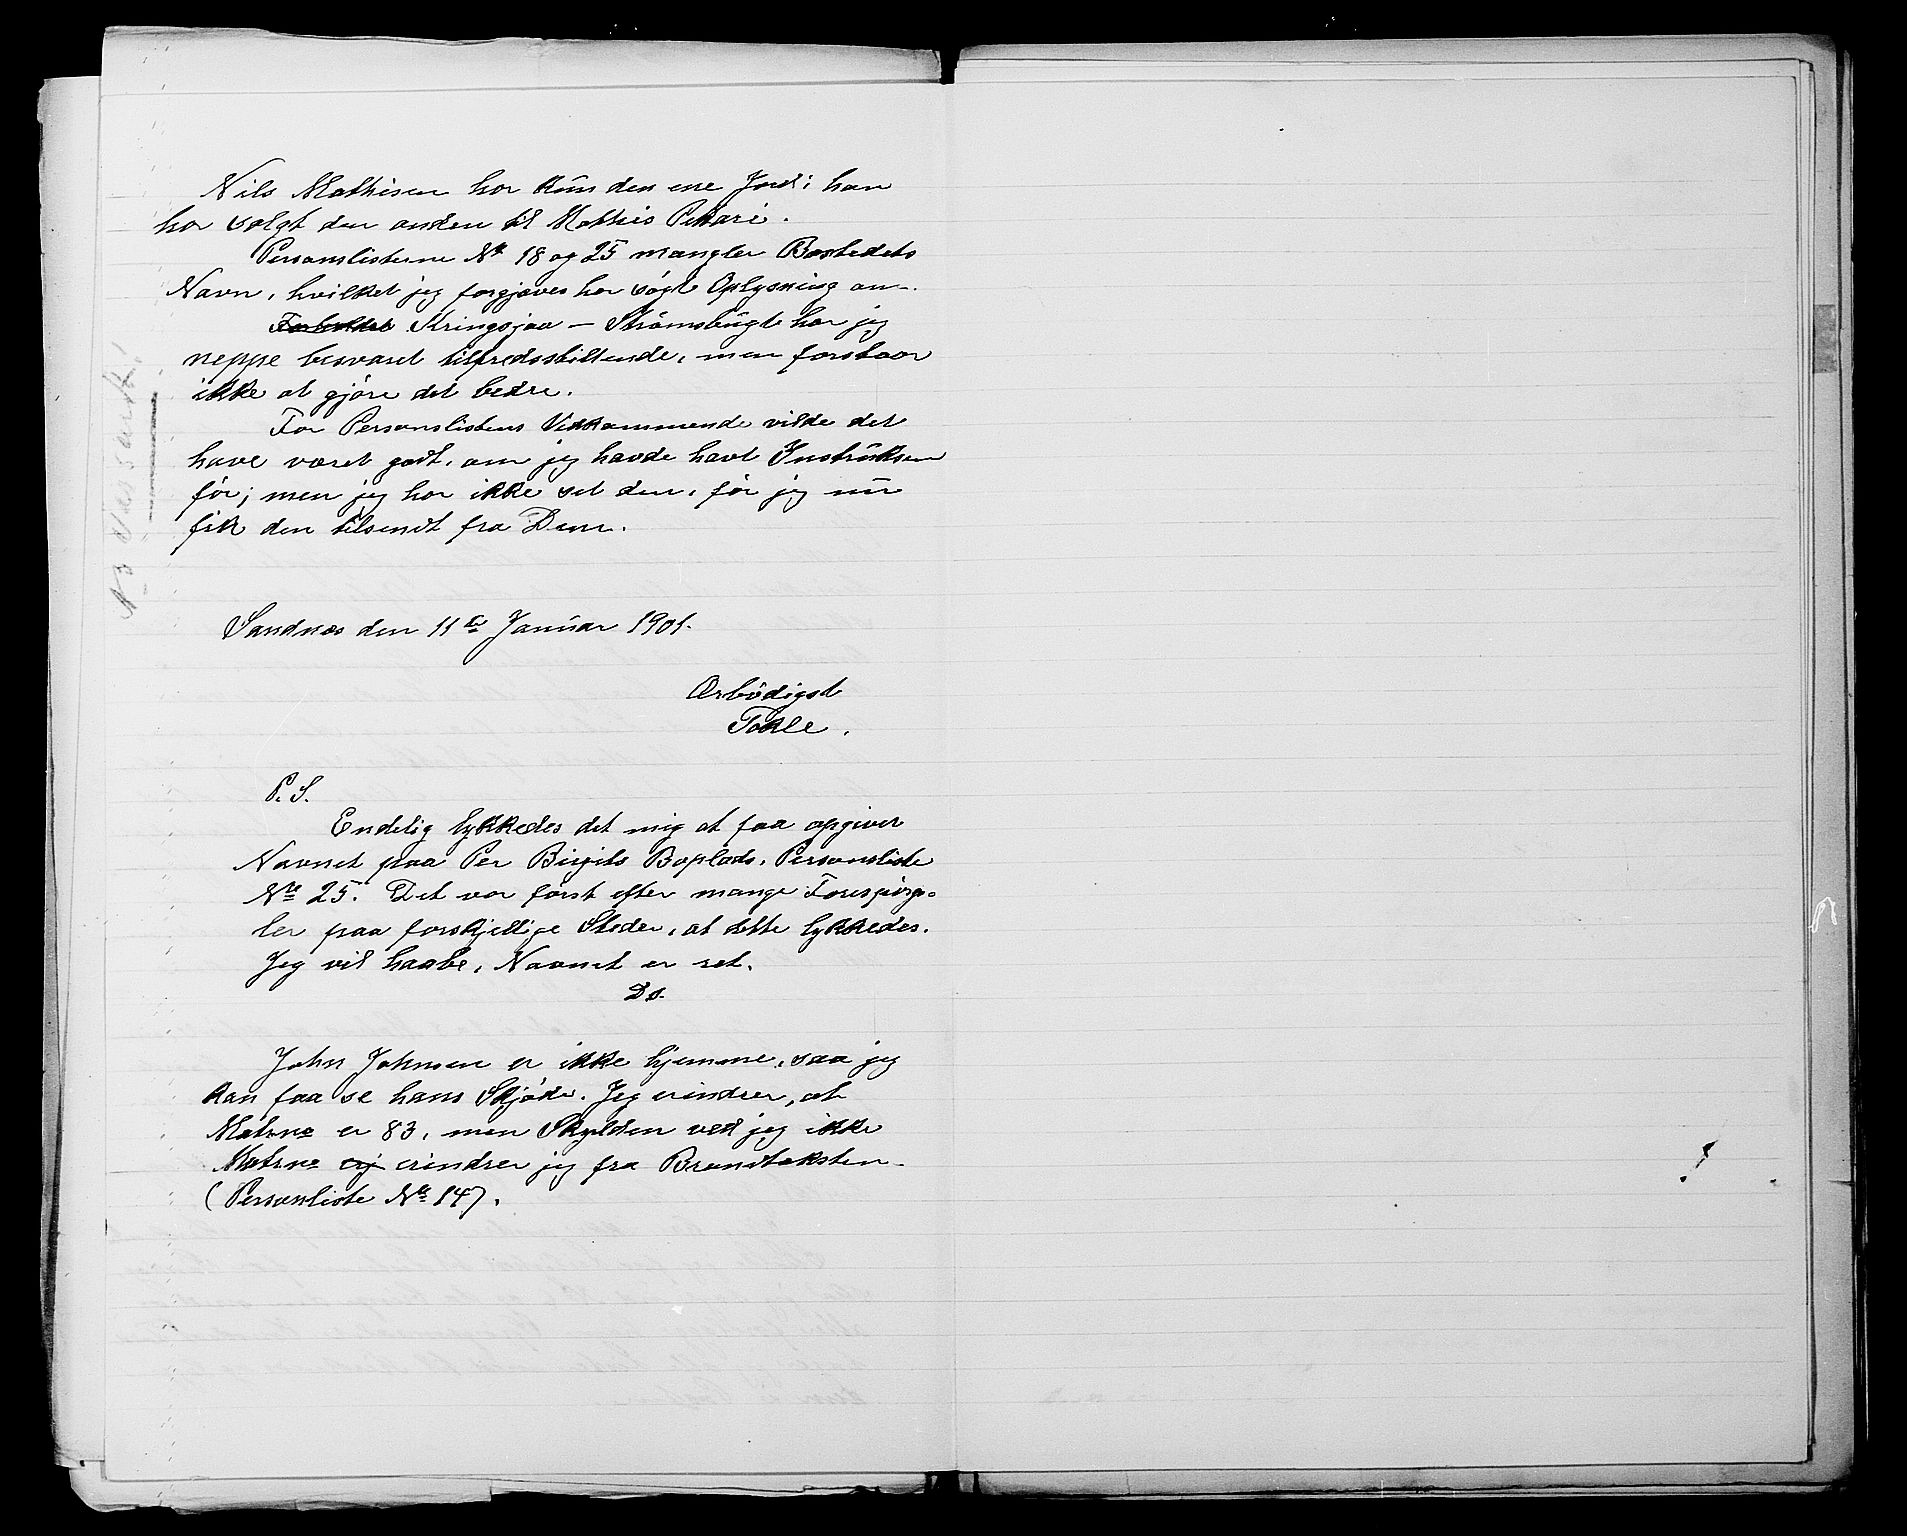 Nils Mathisen har kun den ene Jord; han
har solgt den anden til Mathis Pikari.
Personslisterne Nr 18 og 25 mangler Bostedets
Navn, hvilket jeg forgjæves har søgt Oplysning om.
Forholdet Kringsjaa – Strømsbugt har jeg
neppe besvaret tilfredsstillende, men forstaar
ikke at gjøre det bedre.
For Personslistens Vedkommende vilde det
have været godt, om jeg havde havt Instruksen
før; men jeg har ikke set den, før jeg nu
fik den tilsendt fra Dem.
Sandnæs den 11te Januar 1901.
Ærbødigst
Tokle.
P. S.
Endelig lykkedes det mig at faa opgivet
Navnet paa Per Birgits Boplads, Personsliste
No 25. Det var først efter mange Forespørgs-
ler paa forskjellige Steder, at dette lykkedes.
Jeg vil haabe, Navnet er ret.
Ds.
John Johnsen er ikke hjemme, saa jeg
kan faa se hans Skjøde. Jeg erindrer, at
Matrno er 83, men Skylden ved jeg ikke
Matrno erindrer jeg fra Brandtaksten.
(Personliste No 147.